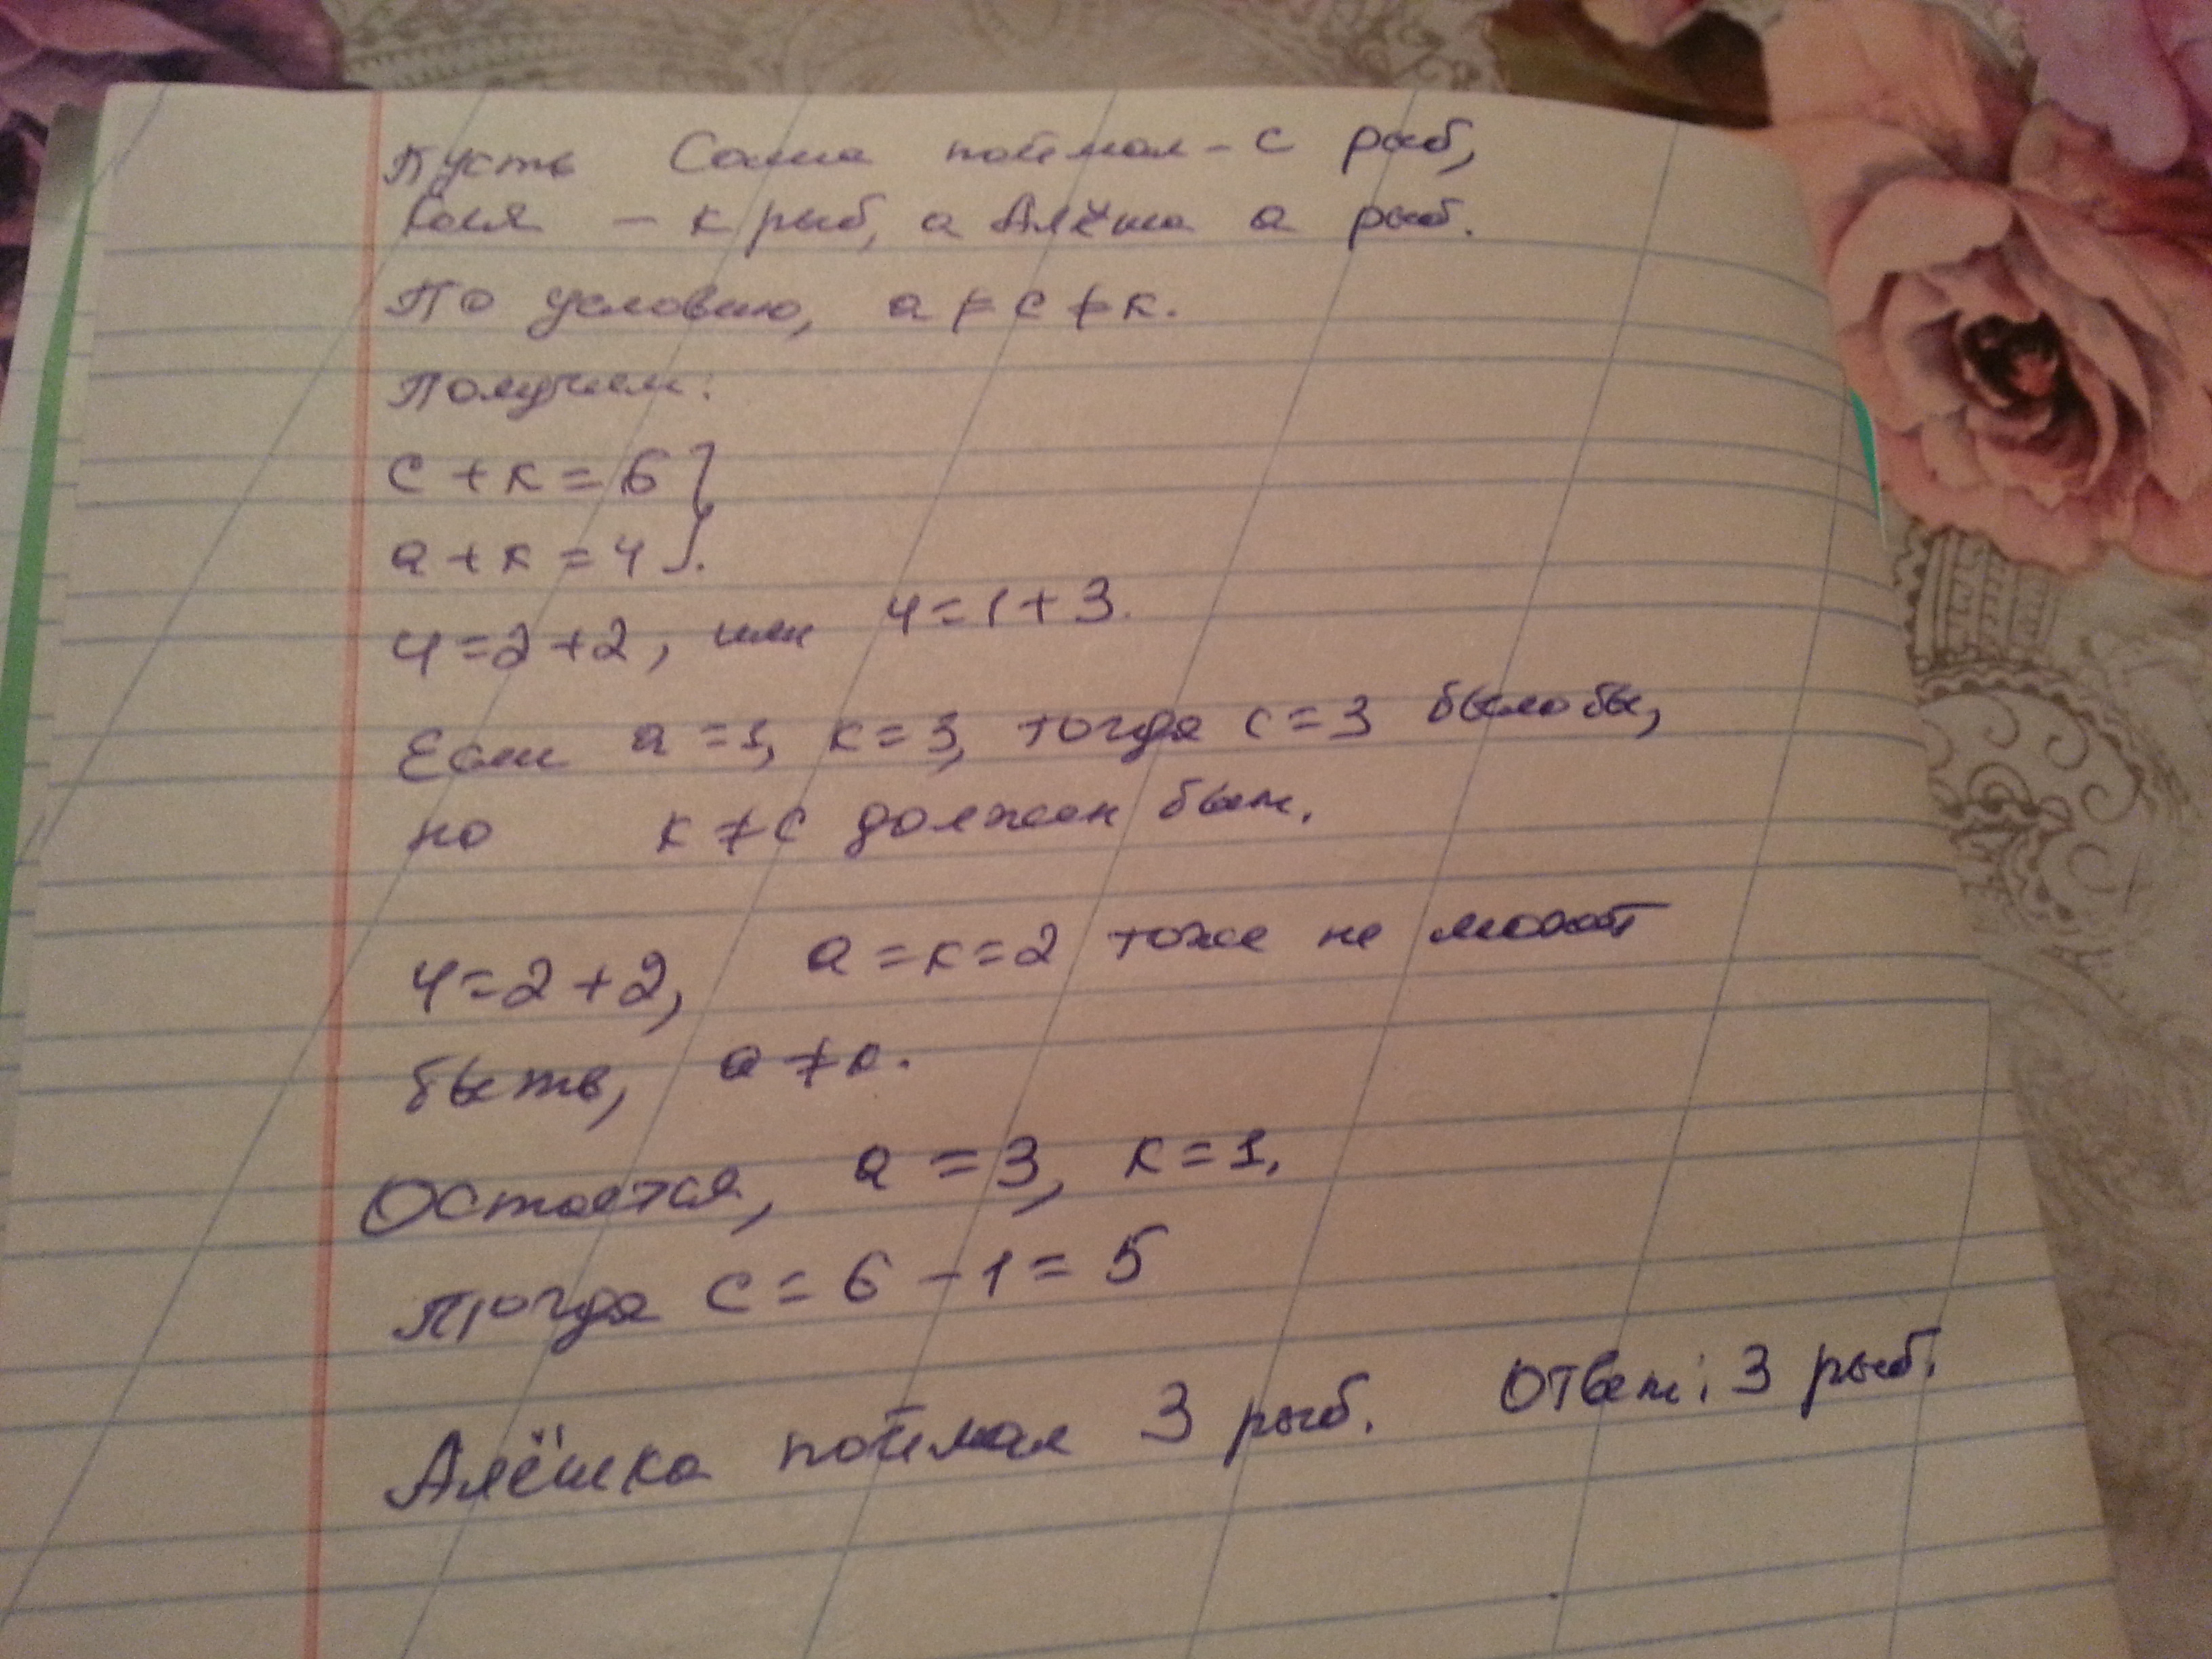 Пусть Саша поймал - с рыб,
Коля - к рыб, а Алёша а рыб.
По условию, а ≠ с ≠ к.
Получим:
с + к = 6 }
а + к = 4 }.
4 = 2 + 2, или 4 = 1 + 3.
Если а = 1, к = 3, тогда с = 3 было бы,
но к ≠ с должен быть.
4 = 2 + 2, а = к = 2 тоже не может
быть, а ≠ к.
Остается, а = 3, к = 1.
Тогда с = 6 - 1 = 5
Алёшка поймал 3 рыб. Ответ: 3 рыб.